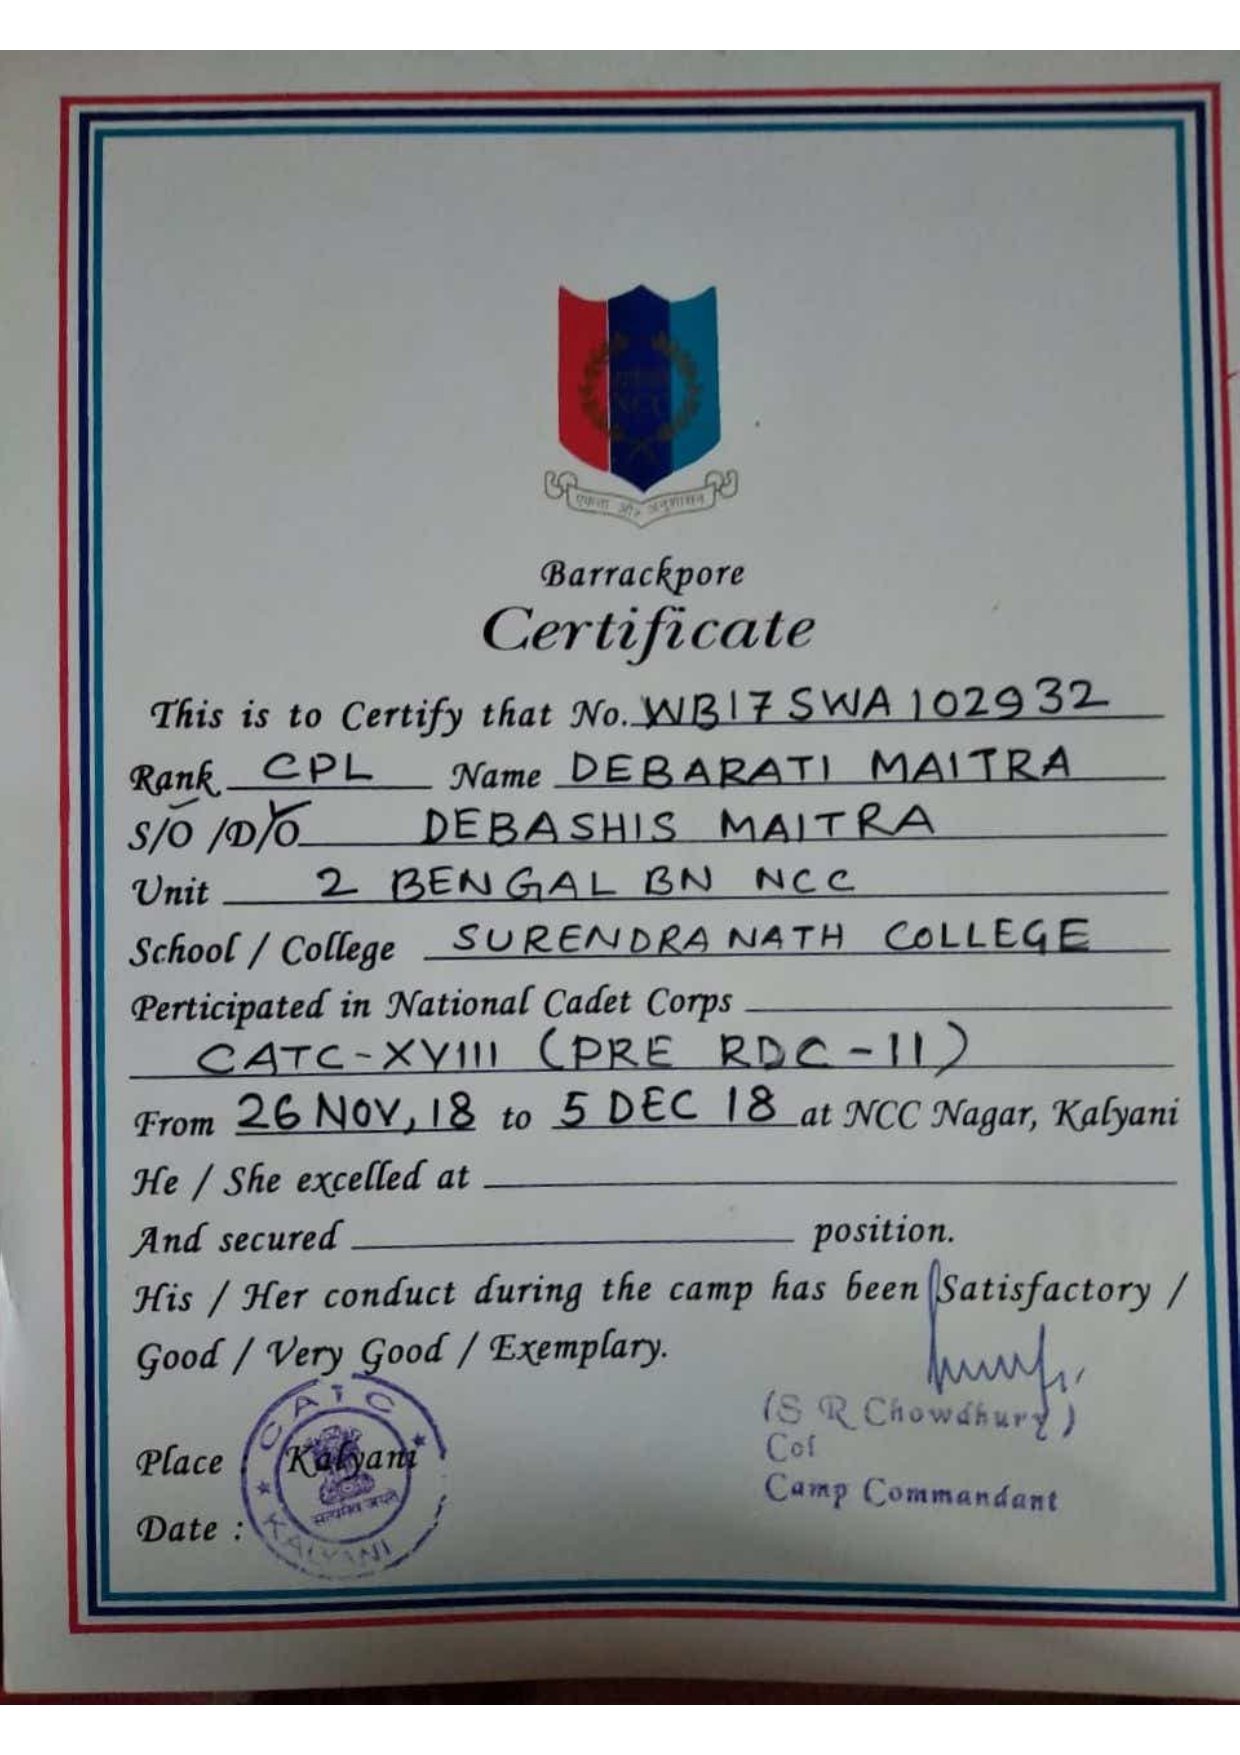 NCC
एकता और अनुशासन
Barrackpore
Certificate
This is to Certify that No. WB17SWA102932
Rank CPL Name DEBARATI MAITRA
S/O /D/O DEBASHIS MAITRA
Unit 2 BENGAL BN NCC
School / College SURENDRANATH COLLEGE
Perticipated in National Cadet Corps
CATC-XVIII (PRE RDC-II)
From 26 NOV, 18 to 5 DEC 18 at NCC Nagar, Kalyani
He / She excelled at
And secured position.
His / Her conduct during the camp has been Satisfactory /
Good / Very Good / Exemplary.
(S R Chowdhury)
Col
Camp Commandant
CATC
Place : Kalyani
सत्यमेव जयते
Date :
KALYANI